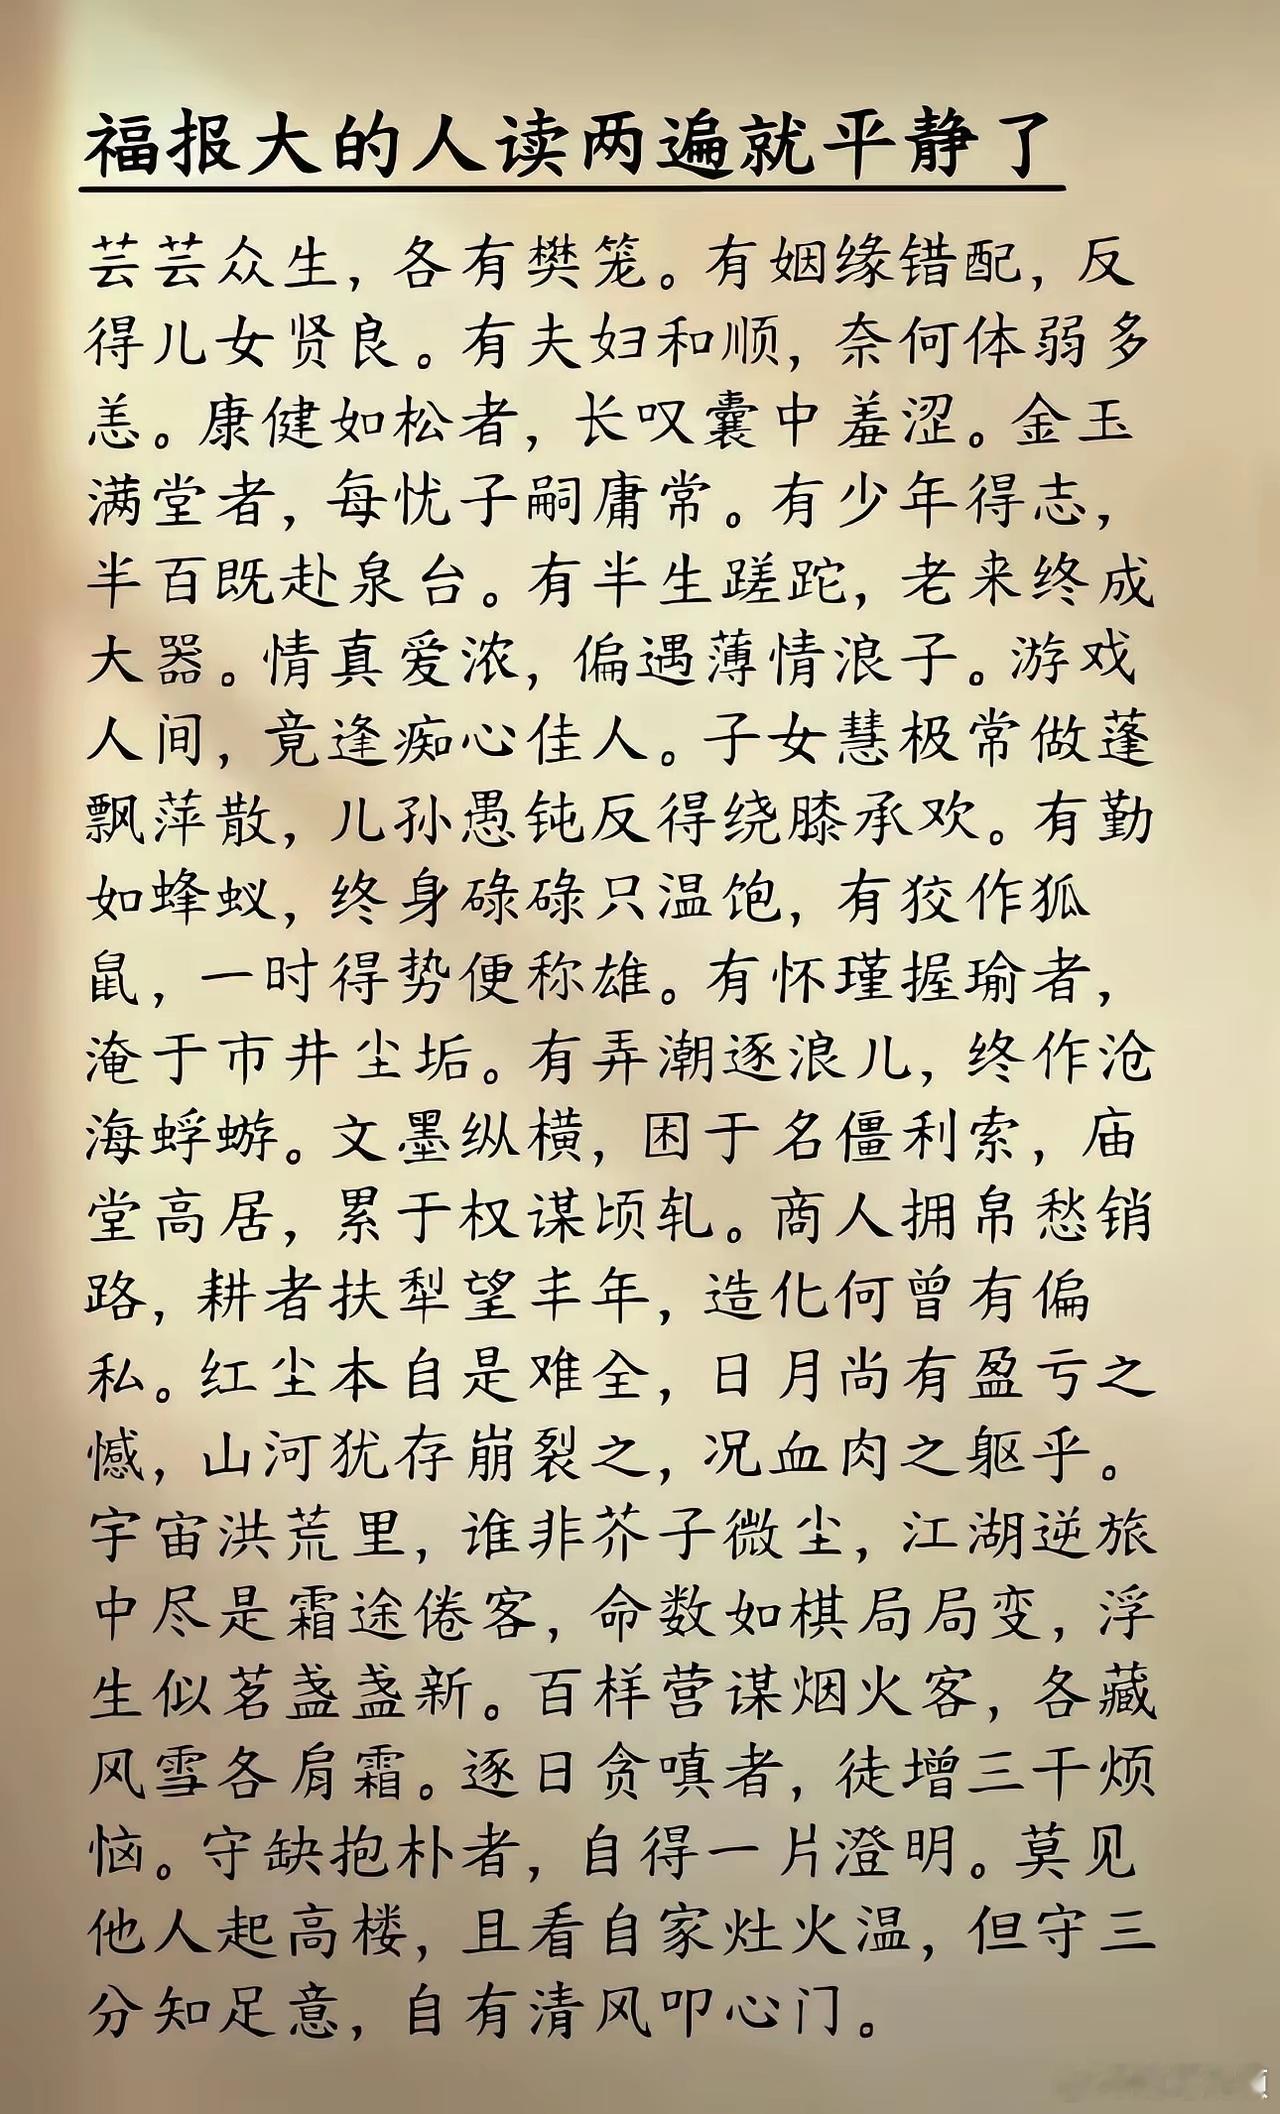 福报大的人读两遍就平静了
芸芸众生，各有樊笼。有姻缘错配，反
得儿女贤良。有夫妇和顺，奈何体弱多
恙。康健如松者，长叹囊中羞涩。金玉
满堂者，每忧子嗣庸常。有少年得志，
半百既赴泉台。有半生蹉跎，老来终成
大器。情真爱浓，偏遇薄情浪子。游戏
人间，竟逢痴心佳人。子女慧极常做蓬
飘萍散，儿孙愚钝反得绕膝承欢。有勤
如蜂蚁，终身碌碌只温饱，有狡作狐
鼠，一时得势便称雄。有怀瑾握瑜者，
淹于市井尘垢。有弄潮逐浪儿，终作沧
海蜉蝣。文墨纵横，困于名僵利索，庙
堂高居，累于权谋顷轧。商人拥帛愁销
路，耕者扶犁望丰年，造化何曾有偏
私。红尘本自是难全，日月尚有盈亏之
憾，山河犹存崩裂之，况血肉之躯乎。
宇宙洪荒里，谁非芥子微尘，江湖逆旅
中尽是霜途倦客，命数如棋局局变，浮
生似茗盏盏新。百样营谋烟火客，各藏
风雪各肩霜。逐日贪嗔者，徒增三千烦
恼。守缺抱朴者，自得一片澄明。莫见
他人起高楼，且看自家灶火温，但守三
分知足意，自有清风叩心门。